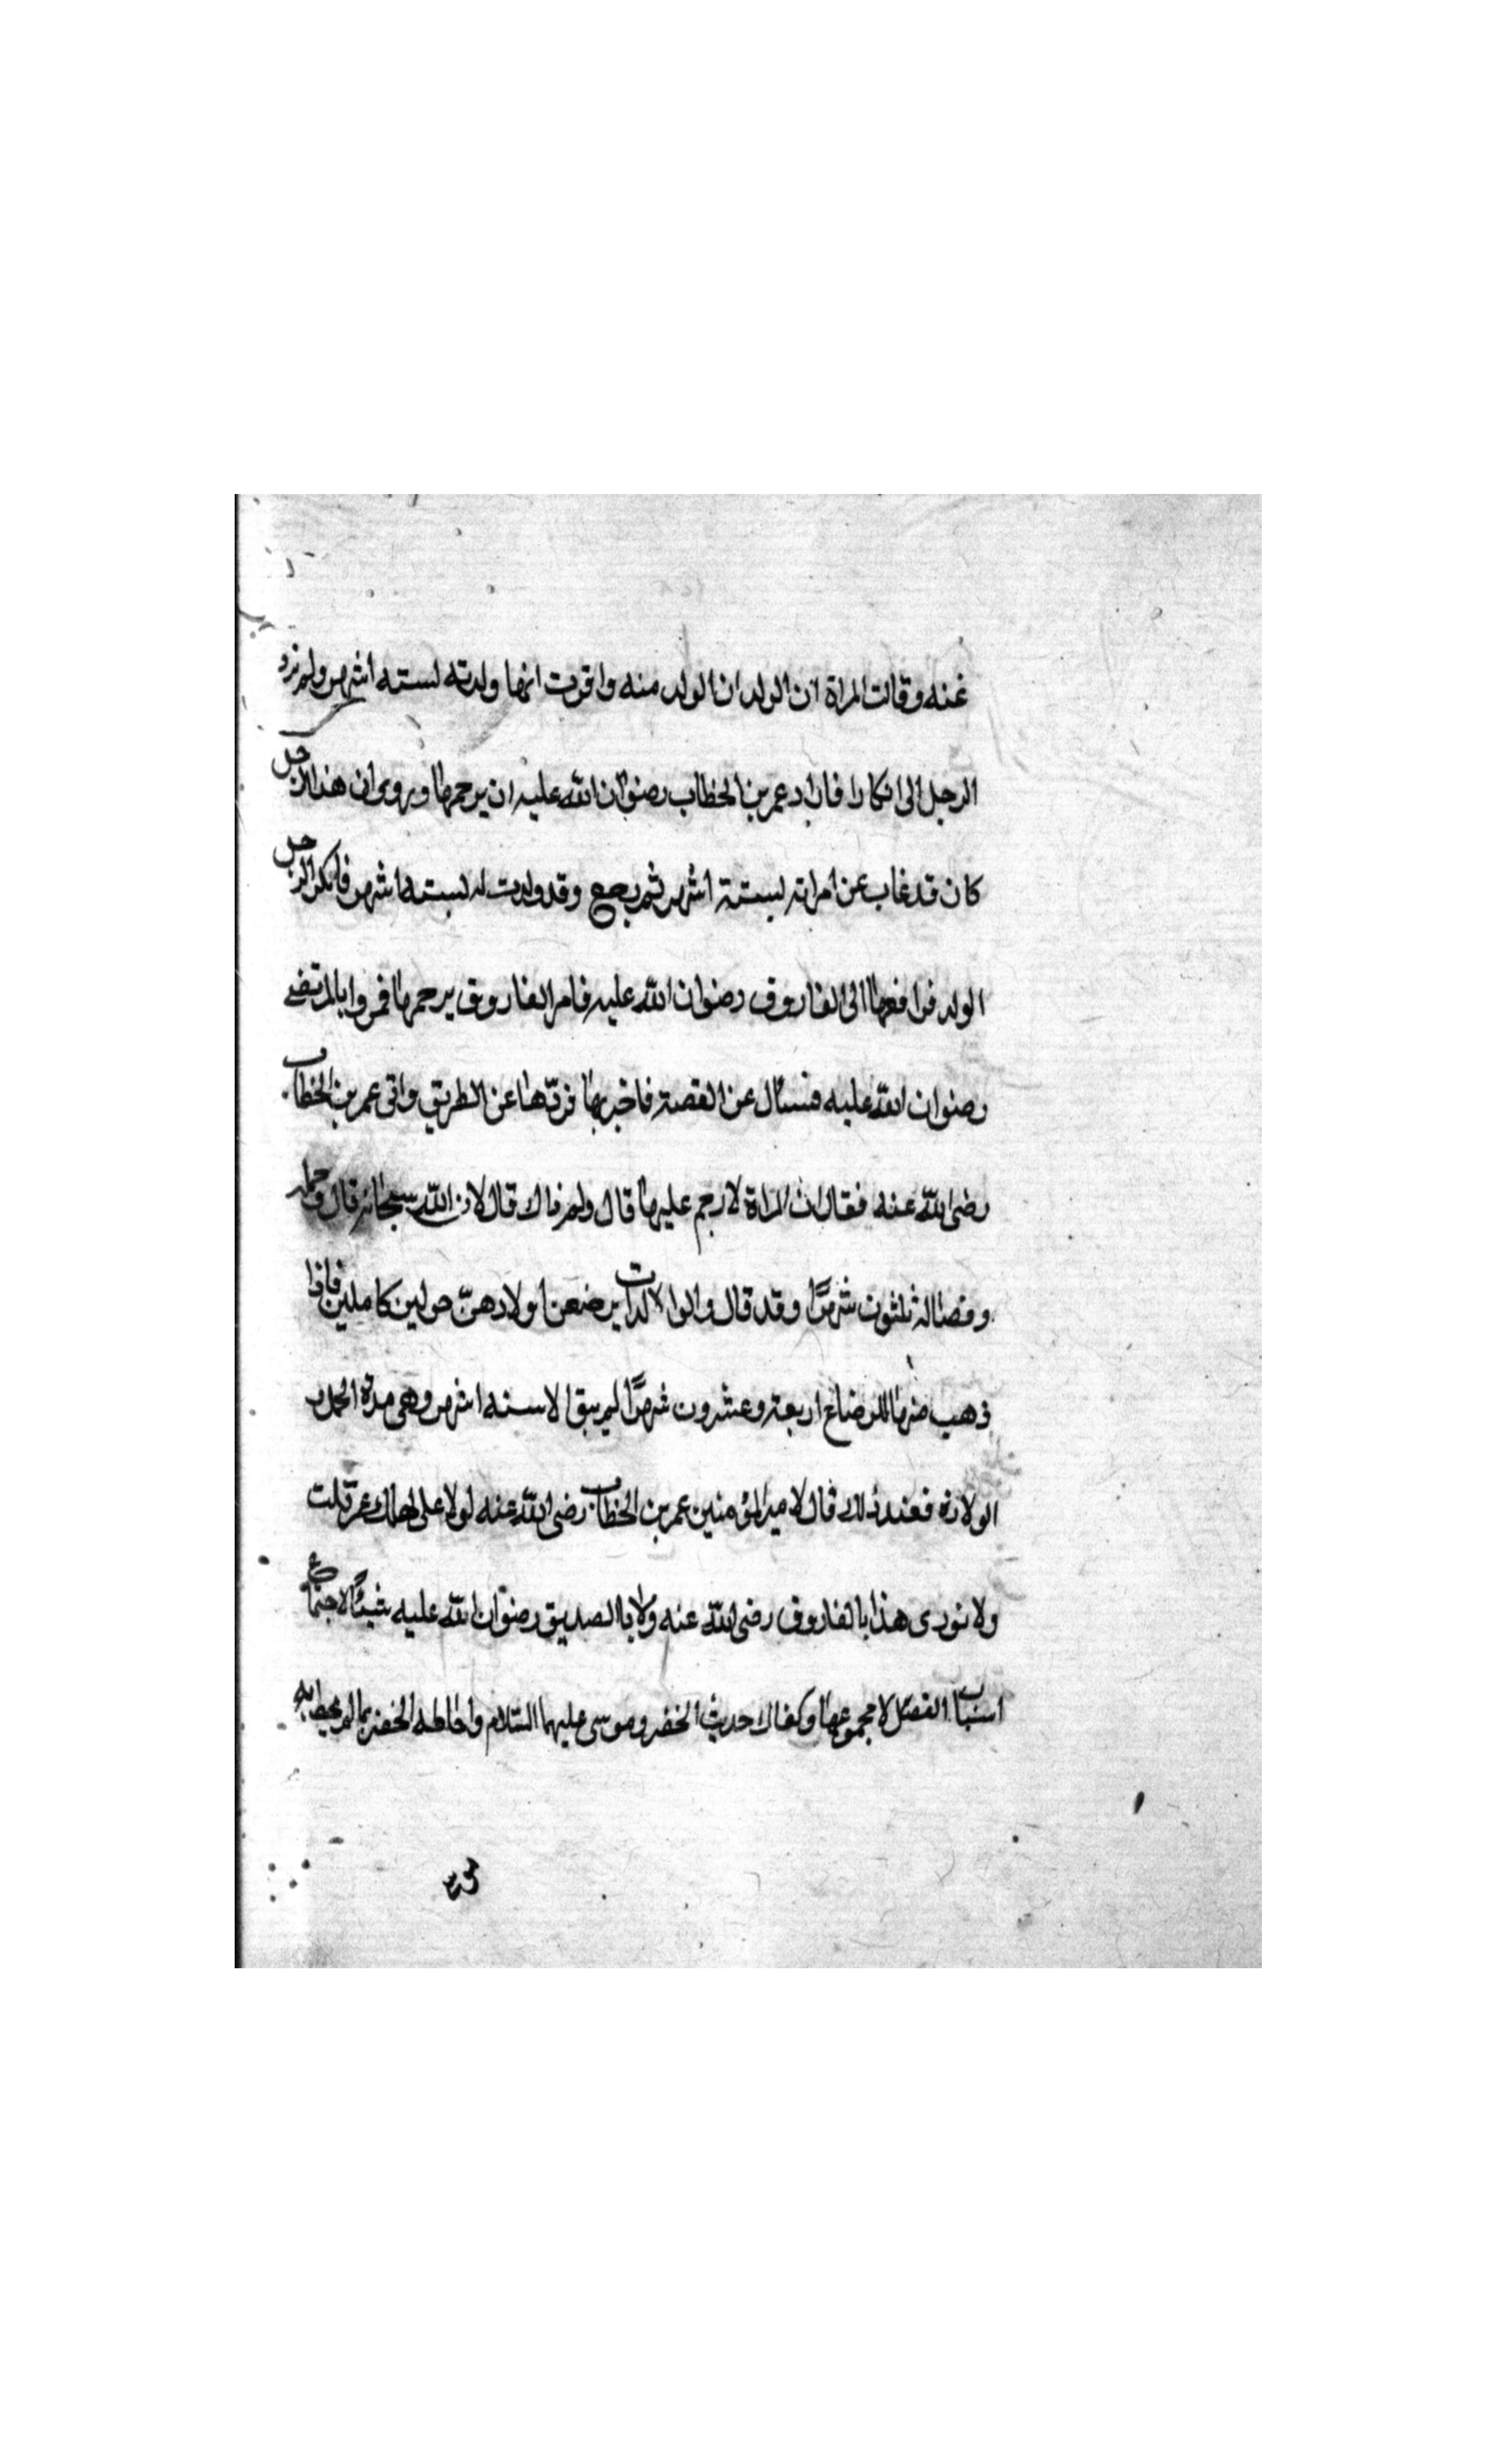 عنه وقالت المراة ان الولد ان الولد منه واقرت انها ولدته لسته اشهر ولم يزد
الرجل الى انكارا فاراد عمر بن الخطاب رضوان الله عليه ان يرجمها ويروى ان هذا الرجل
كان قد غاب عن امراته لستة اشهر ثم رجع وقد ولدت له لسته اشهر فانكر الرجل
الولد فرافعها الى الفاروق رضوان الله عليه فامر الفاروق برجمها فمروا بالمرتضى
رضوان الله عليه فسئال عن القصة فاخبر بها فردّها عن الطريق واتى عمر بن الخطاب
رضى الله عنه فقال ان المراة لا رجم عليها قال ولم ذاك قال لان الله سبحانه قال وحمله
وفصاله ثلثون شهرًا وقد قال والوالدات يرضعن اولادهنّ حولين كاملين فاذا
ذهب منها للرضاع اربعة وعشرون شهرًا لم يبق الا سته اشهر وهى مدة الحمل و
الولادة فعند ذلك قال لامير المؤمنين عمر بن الخطاب رضى الله عنه لولا على لهلك عمر قلت
ولا نورى هذا بالفاروق رضى الله عنه ولا باالصديق رضوان الله عليه شيئًا لاجتماع
اسباب الفضل لا مجموعها وكفاك حديث الخضر وموسى عليهما السّلام واحاطه الخضر بما لم يحط به